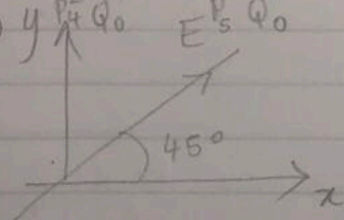 y P4 Q0
E P5 Q0
45°
x